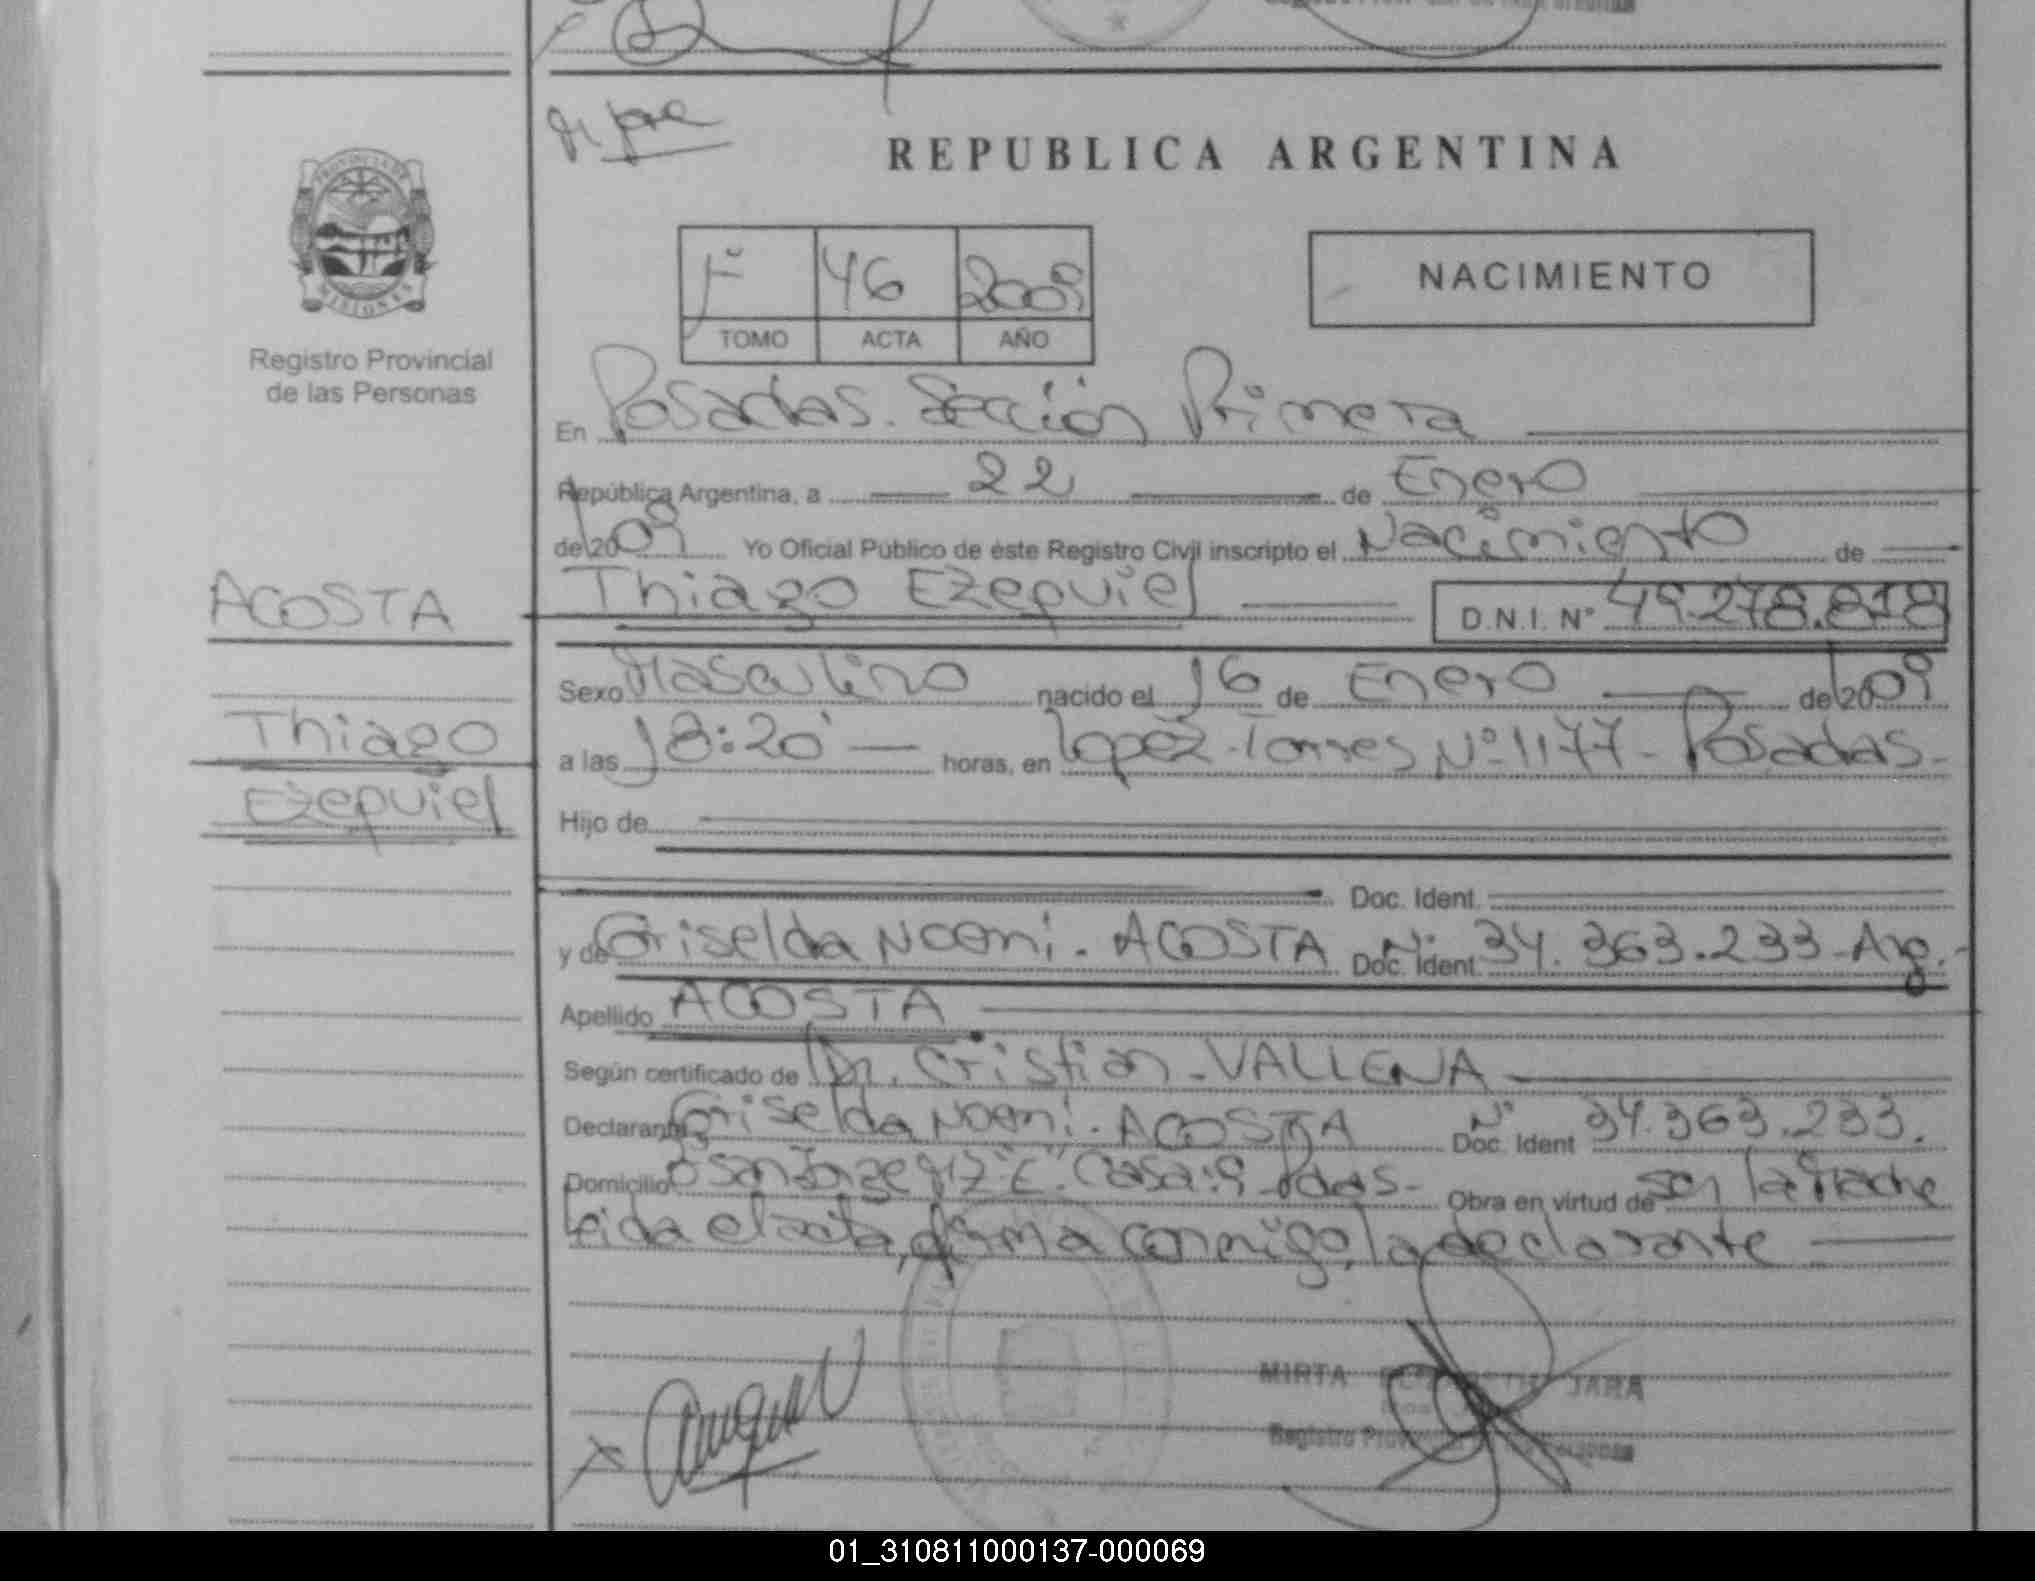 REPUBLICA ARGENTINA
PROVINCIA DE
MISIONES
Registro Provincial
de las Personas
1º 46 2009
TOMO ACTA AÑO
NACIMIENTO
En Posadas. Sección Primera
República Argentina, a 22 de Enero
de 2009 Yo Oficial Público de éste Registro Civil inscripto el Nacimiento de
Thiago Ezequiel D.N.I. Nº 49.278.818
ACOSTA
Thiago
Ezequiel
Sexo Masculino nacido el 16 de Enero de 2009
a las 18:20 horas, en Lopez Torres Nº 1177 - Posadas -
Hijo de
Doc. Ident.
y de Griselda Noemi - ACOSTA Doc. Ident. Nº 34.363.233 - Arg.-
Apellido ACOSTA
Según certificado de Dr. Cristian - VALLENA
Declarante Griselda Noemi - ACOSTA Doc. Ident Nº 34.363.233.
Domicilio Bº San Jorge "E" Casa: 9 Pdas - Obra en virtud de ser la Madre
Leida el acta, firma conmigo, la declarante
MIRTA JARA
Registro Personas
01_310811000137-000069